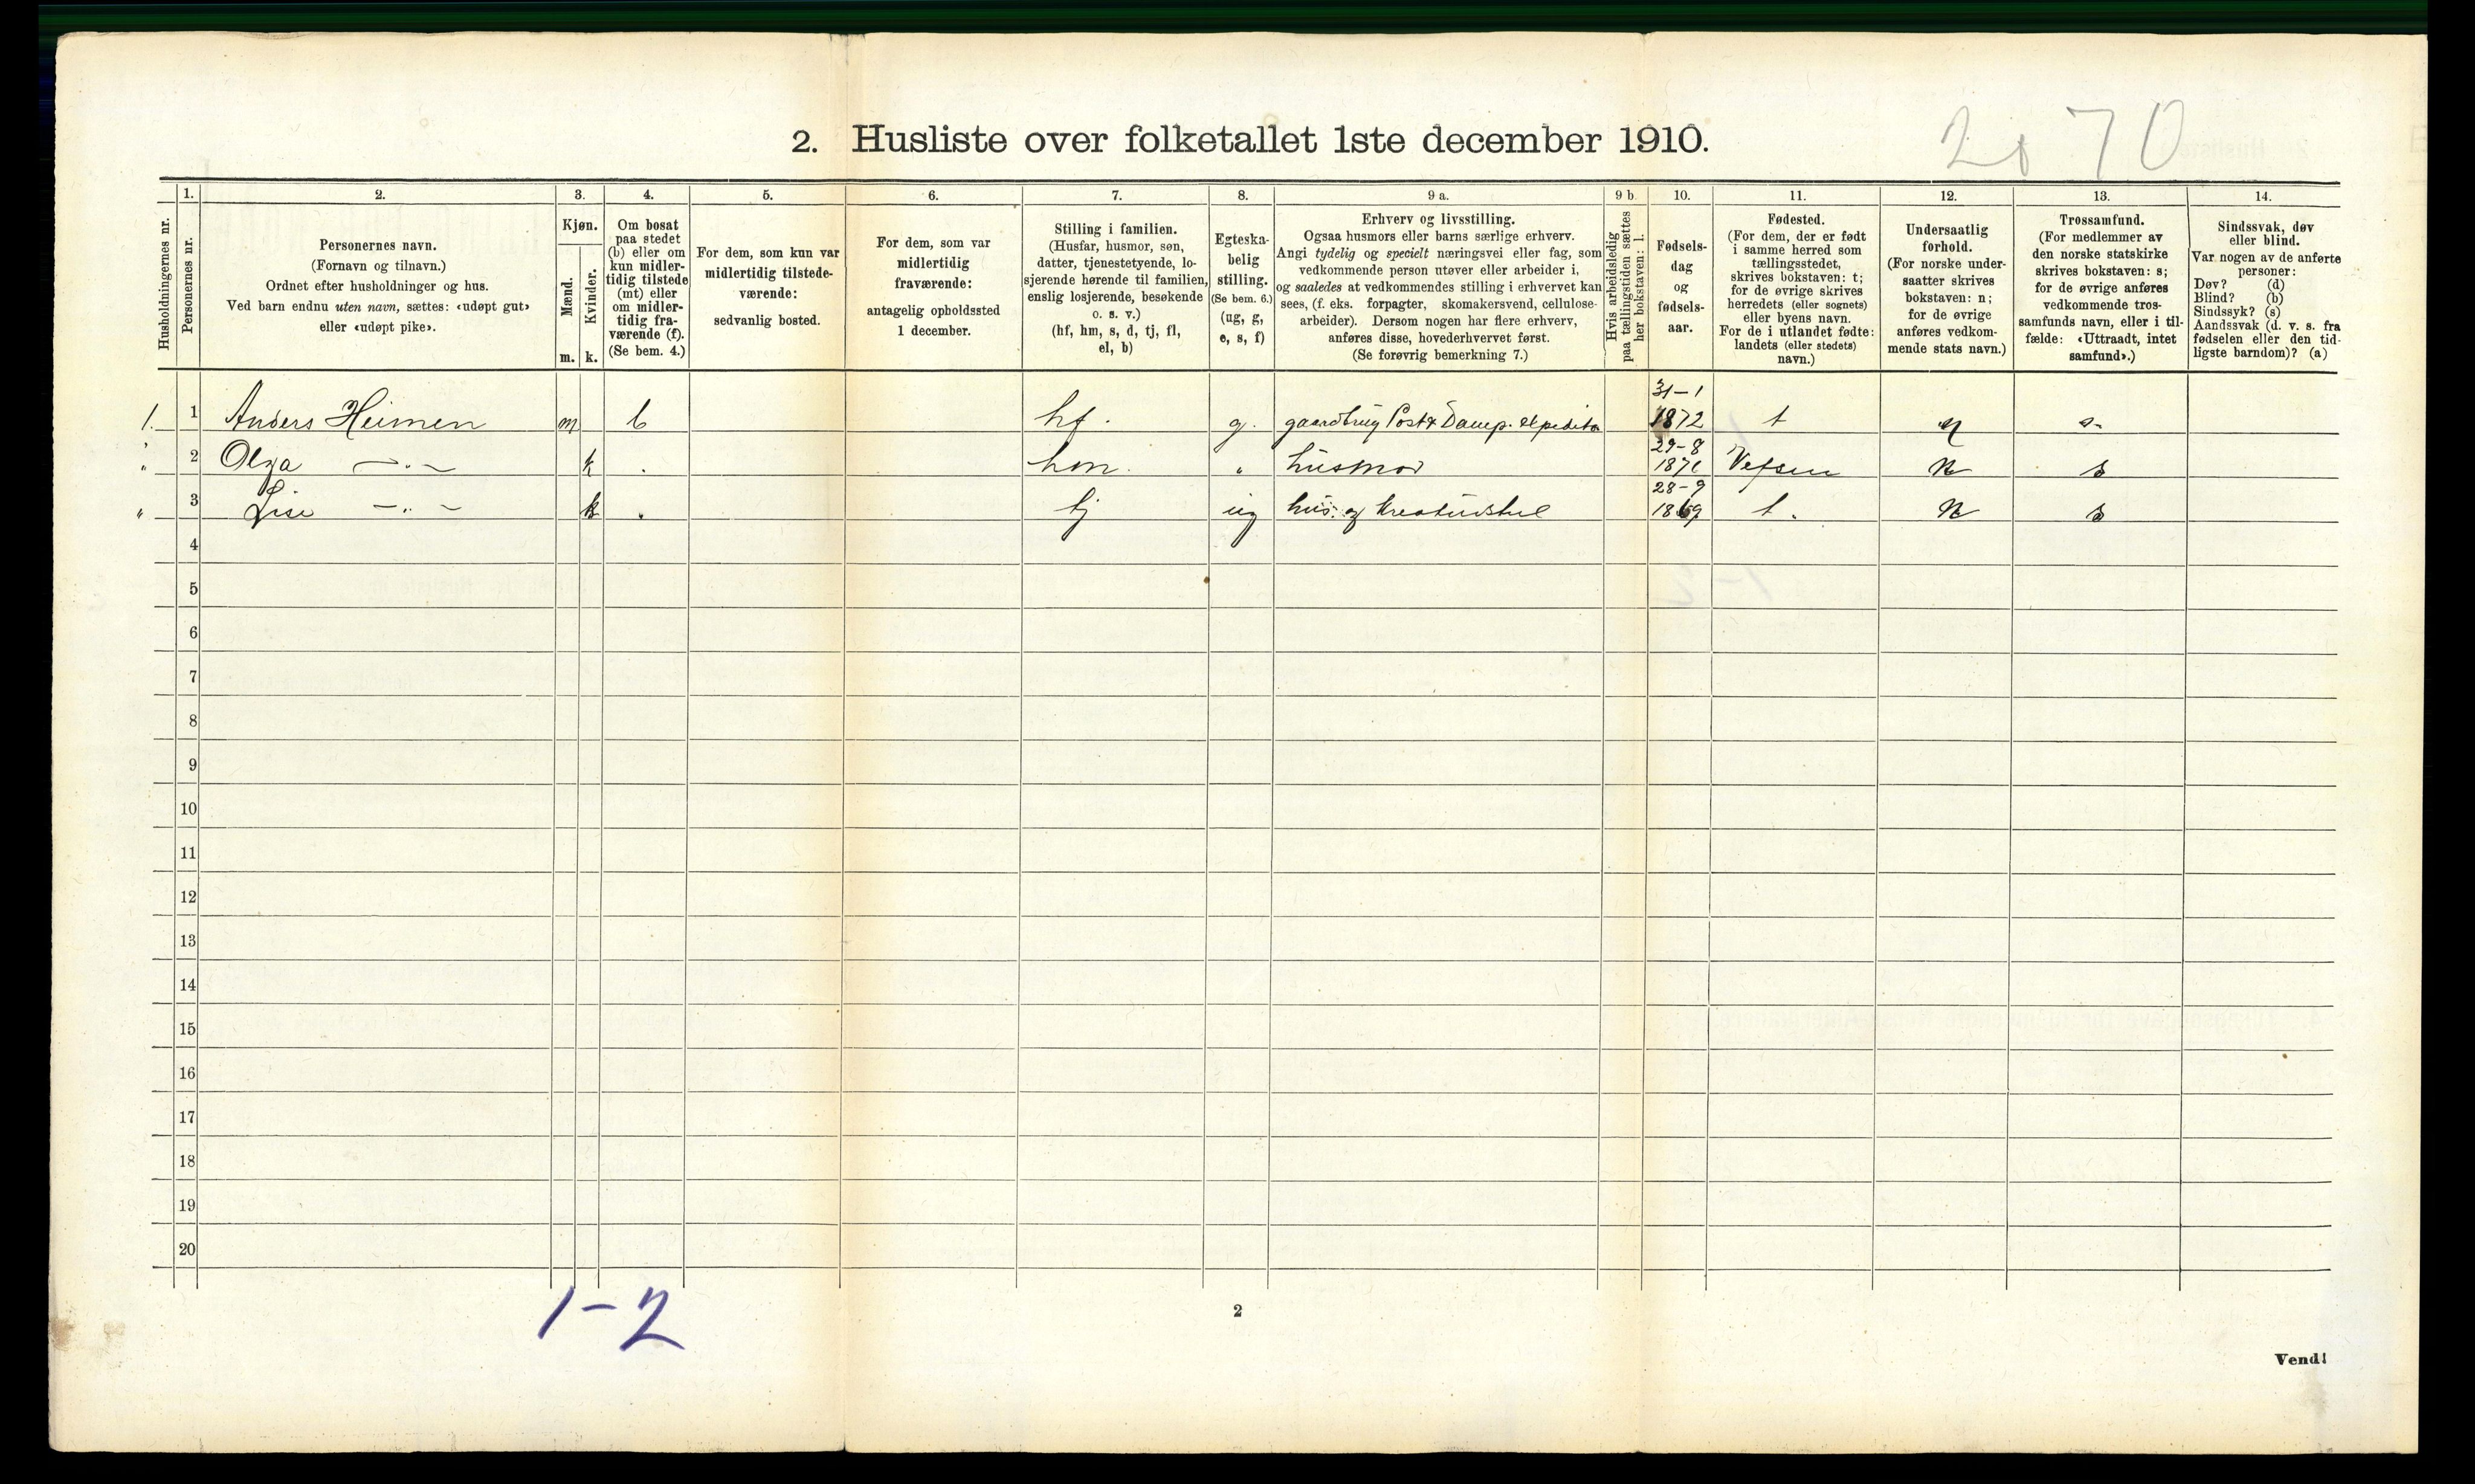 2. Husliste over folketallet 1ste december 1910.
2 70
Husholdningernes nr.
1.
Personernes nr.
2.
Personernes navn.
(Fornavn og tilnavn.)
Ordnet efter husholdninger og hus.
Ved barn endnu uten navn, sættes: «udøpt gut»
eller «udøpt pike».
3.
Kjøn.
Mænd.
Kvinder.
m. k.
4.
Om bosat
paa stedet
(b) eller om
kun midler-
tidig tilstede
(mt) eller
om midler-
tidig fra-
værende (f).
(Se bem. 4.)
5.
For dem, som kun var
midlertidig tilstede-
værende:
sedvanlig bosted.
6.
For dem, som var
midlertidig
fraværende:
antagelig opholdssted
1 december.
7.
Stilling i familien.
(Husfar, husmor, søn,
datter, tjenestetyende, lo-
sjerende hørende til familien,
enslig losjerende, besøkende
o. s. v.)
(hf, hm, s, d, tj, fl,
el, b)
8.
Egteska-
belig
stilling.
(Se bem. 6.)
(ug, g,
e, s, f)
9 a.
Erhverv og livsstilling.
Ogsaa husmors eller barns særlige erhverv.
Angi tydelig og specielt næringsvei eller fag, som
vedkommende person utøver eller arbeider i,
og saaledes at vedkommendes stilling i erhvervet kan
sees, (f. eks. forpagter, skomakersvend, cellulose-
arbeider). Dersom nogen har flere erhverv,
anføres disse, hovederhvervet først.
(Se forøvrig bemerkning 7.)
9 b.
Hvis arbeidsledig
paa tællingstiden sættes
her bokstaven: l.
10.
Fødsels-
dag
og
fødsels-
aar.
11.
Fødested.
(For dem, der er født
i samme herred som
tællingsstedet,
skrives bokstaven: t;
for de øvrige skrives
herredets (eller sognets)
eller byens navn.
For de i utlandet fødte:
landets (eller stedets)
navn.)
12.
Undersaatlig
forhold.
(For norske under-
saatter skrives
bokstaven: n;
for de øvrige
anføres vedkom-
mende stats navn.)
13.
Trossamfund.
(For medlemmer av
den norske statskirke
skrives bokstaven: s;
for de øvrige anføres
vedkommende tros-
samfunds navn, eller i til-
fælde: «Uttraadt, intet
samfund».)
14.
Sindssvak, døv
eller blind.
Var nogen av de anførte
personer:
Døv? (d)
Blind? (b)
Sindssyk? (s)
Aandssvak (d. v. s. fra
fødselen eller den tid-
ligste barndom)? (a)
1. 1 Anders Heimen m b hf. g. gaardbrug Post & Damp. expeditør 31-1 1872 t n s
" 2 Olga —"— k " hm. " husmor 29-8 1871 Vefsen n s
" 3 Lise —"— k " tj ug hus. og kreaturstel 28-9 1869 t. n s
4
5
6
7
8
9
10
11
12
13
14
15
16
17
18
19
20
1-2
2
Vend!